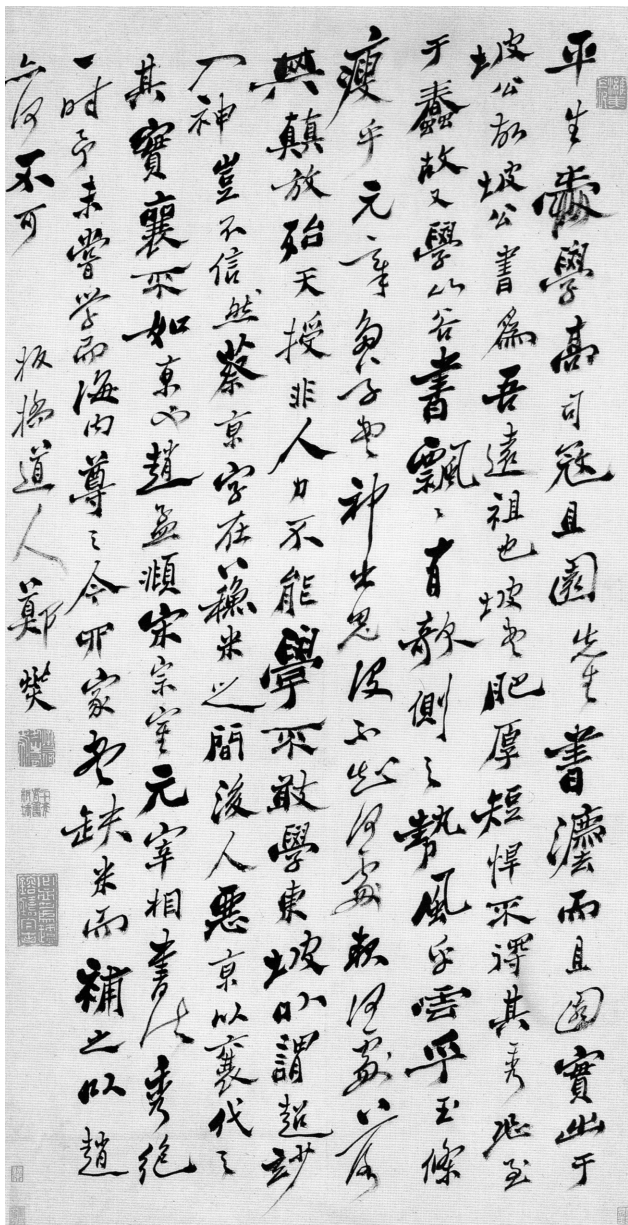 平生愛學高司寇且園先生書灋而且園實出于
坡公故坡公書為吾遠祖也坡書肥厚短悍不得其秀恐至
于蠢故又學山谷書飄〻有欹側之勢風乎雲乎玉條
瘦乎元章多草書神出鬼没不知何處起何處落
與顛放殆天授非人力不能學不敢學東坡以謂超妙
入神豈不信然蔡京字在蘇米之間後人惡京以襄代之
其實襄不如京也趙孟頫宋宗室元宰相書法秀絶
一時予未嘗学而海内尊之今四家書缺米而補之以趙
亦何不可 板橋道人鄭燮